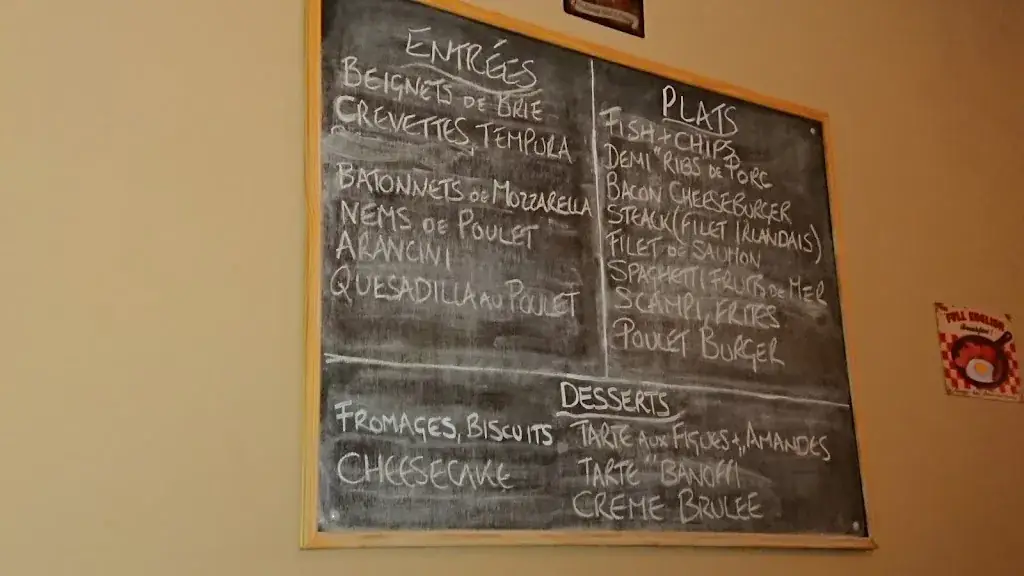 ENTRÉES
BEIGNETS DE BRIE
CREVETTES, TEMPURA
BATONNETS DE MOZZARELLA
NEMS DE POULET
ARANCINI
QUESADILLA AU POULET
PLATS
FISH + CHIPS
DEMI "RIBS DE PORC
BACON CHEESEBURGER
STEACK (FILET IRLANDAIS)
FILET DE SAUMON
SPAGHETTI FRUITS DE MER
SCAMPI, FRITES
POULET BURGER
DESSERTS
FROMAGES, BISCUITS
CHEESECAKE
TARTE AUX FIGUES +, AMANDES
TARTE "BANOFFI
CREME BRULEE
FULL ENGLISH